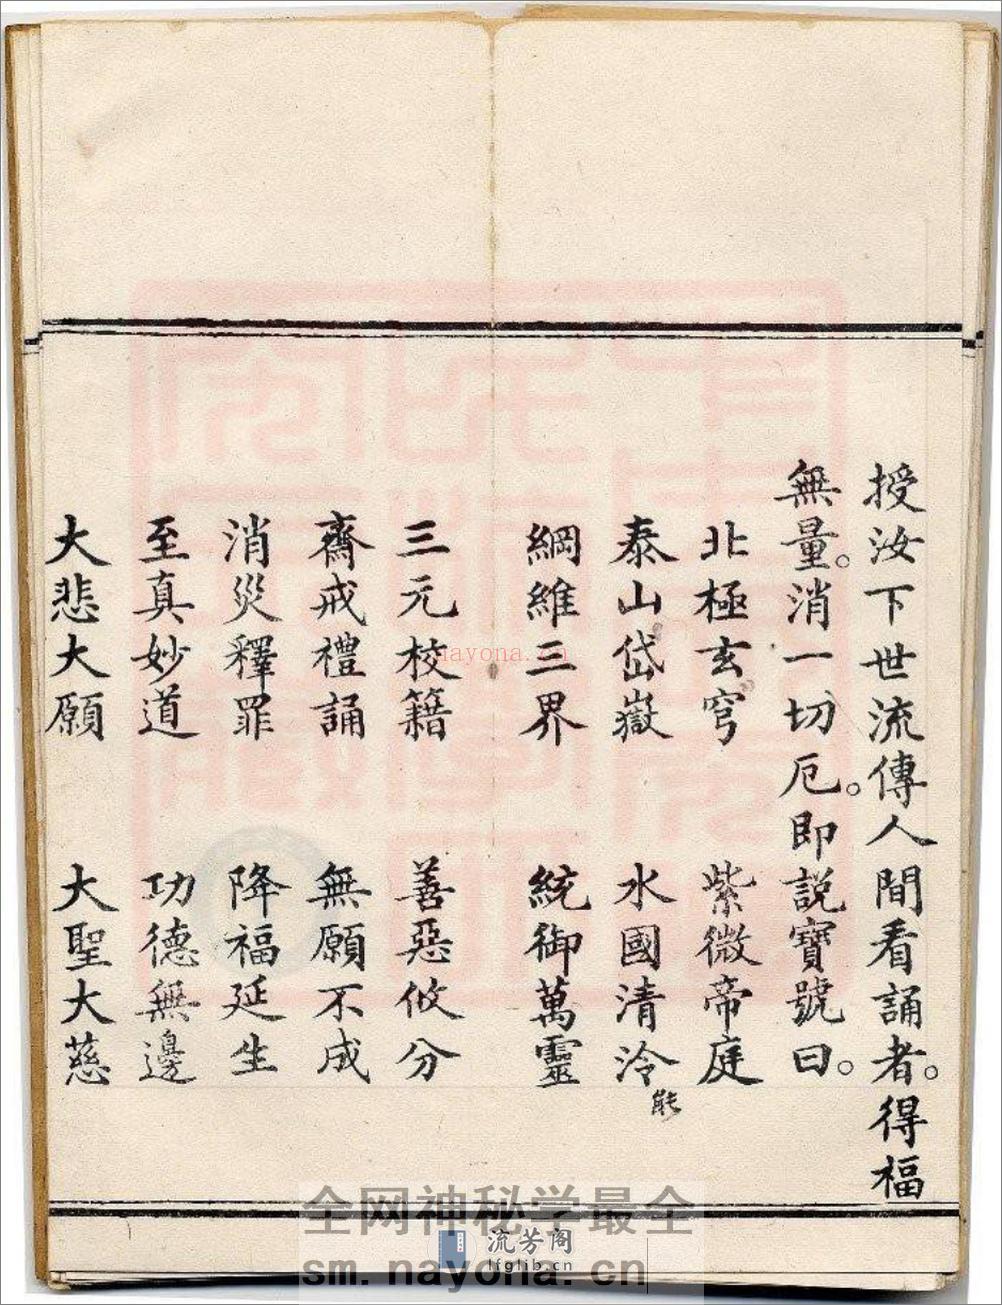 授汝下世流傳人間看誦者。得福
無量。消一切厄。即説寶號曰。
北極玄穹　紫微帝庭
泰山岱嶽　水國清泠
能
綱維三界　統御萬靈
三元校籍　善惡攸分
齋戒禮誦　無願不成
消災釋罪　降福延生
至真妙道　功德無邊
大悲大願　大聖大慈
nayona.cn
全网神秘学最全
流芳阁
lfglib.cn
sm.nayona.cn